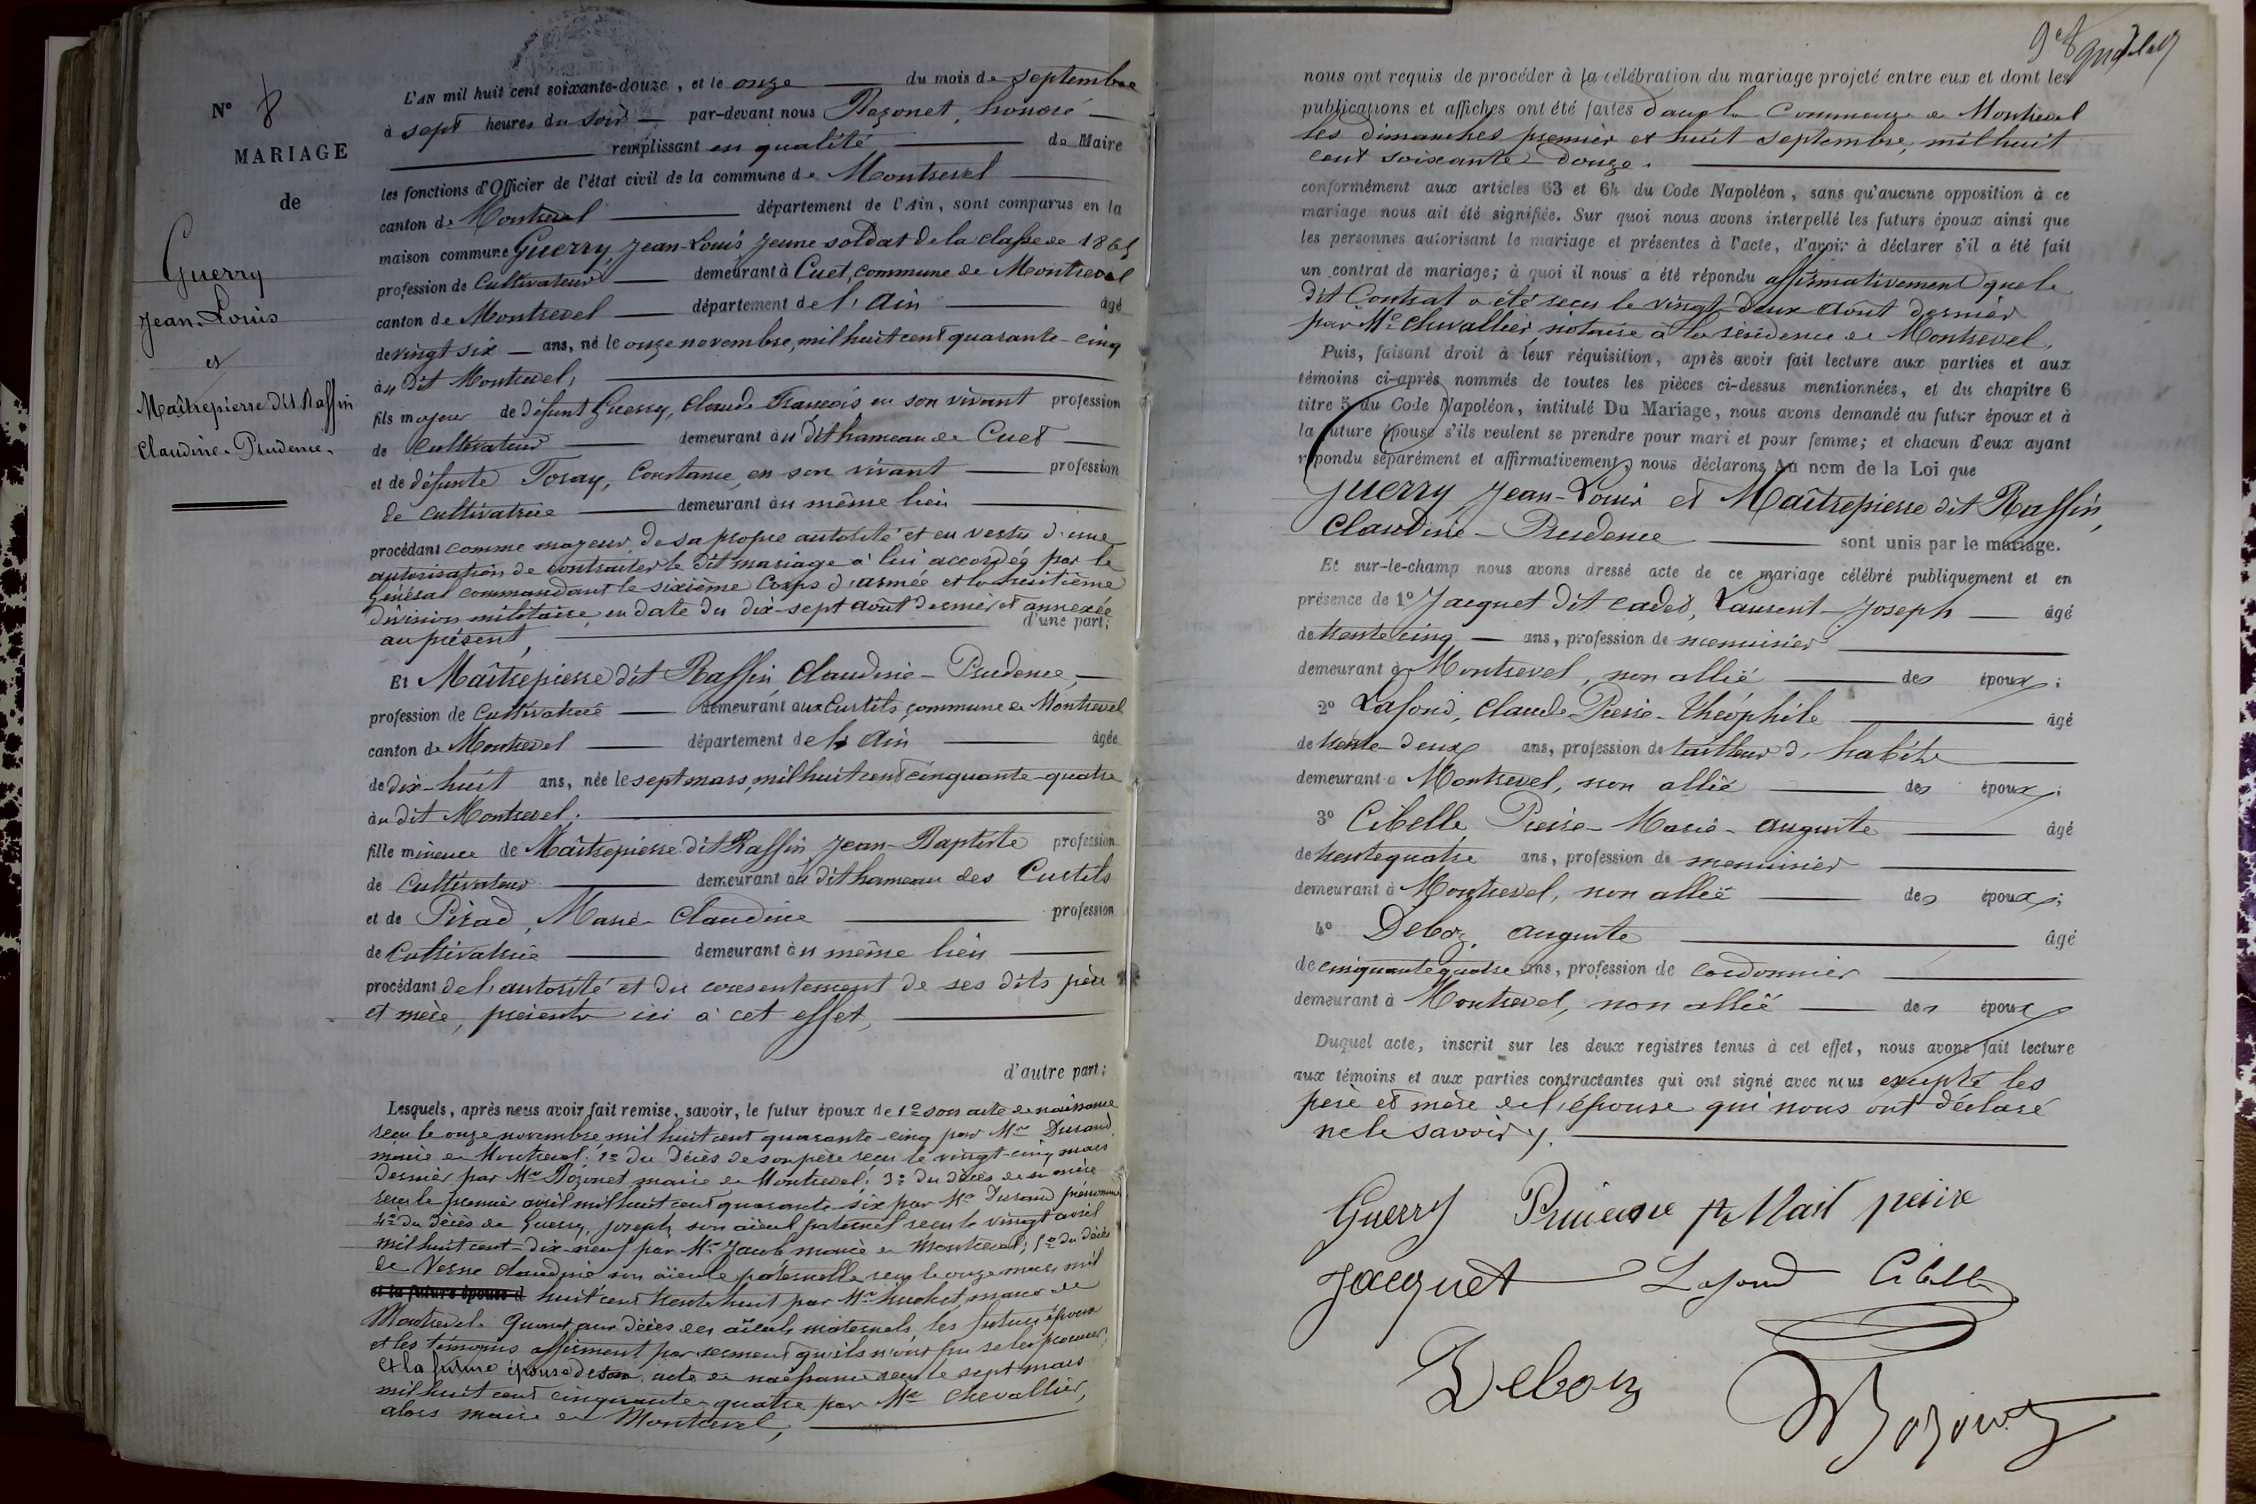 N° 8
MARIAGE
de
Guerry
Jean-Louis
et
Maîtrepierre dit Raffin
Claudine-Prudence.
L'AN mil huit cent soixante-douze, et le onze du mois de septembre
à sept heures du soir par-devant nous Bozonet, honoré
remplissant en qualité de Maire
les fonctions d'Officier de l'état civil de la commune de Montrevel
canton de Montrevel département de l'Ain, sont comparus en la
maison commune Guerry, Jean-Louis jeune soldat de la classe de 1865
profession de Cultivateur demeurant à Cuet, commune de Montrevel
canton de Montrevel département de l'Ain âgé
de vingt six ans, né le onze novembre, mil huit cent quarante-cinq
à u dit Montrevel,
fils majeur de défunt Guerry, Claude François en son vivant profession
de Cultivateur demeurant au dit hameau de Cuet
et de défunte Foray, Constance, en son vivant profession
de cultivatrice demeurant au même lieu
procédant comme majeur de sa propre autorité et en vertu d'une
autorisation de contracter le dit mariage à lui accordée par le
Général commandant le sixième Corps d'armée et la huitième
division militaire, en date du dix-sept août dernier et annexée
au présent, d'une part;
Et Maîtrepierre dit Raffin Claudine-Prudence,
profession de Cultivatrice demeurant aux Curtits, commune de Montrevel
canton de Montrevel département de l'Ain âgée
de dix-huit ans, née le sept mars, mil huit cent cinquante-quatre
au dit Montrevel,
fille mineure de Maîtrepierre dit Raffin, Jean-Baptiste profession
de Cultivateur demeurant au dit hameau des Curtits
et de Pirad, Marie-Claudine profession
de Cultivatrice demeurant au même lieu
procédant de l'autorité et du consentement de ses dits père
et mère, présents ici à cet effet,
d'autre part;
Lesquels, après nous avoir fait remise, savoir, le futur époux de 1° son acte de naissance
reçu le onze novembre, mil huit cent quarante-cinq par Mr Durand
maire de Montrevel; 2° du décès de son père reçu le vingt-cinq mars
dernier par Mr Bozonet maire de Montrevel; 3° du décès de sa mère
reçu le premier avril mil huit cent quarante-six par Mr Durand prénommé
4° du décès de Guerry, Joseph, son aïeul paternel reçu le vingt avril
mil huit cent dix-neuf par Mr Jacob maire de Montrevel; 5° du décès
de Verne Claudine son aïeule paternelle reçu le onze mars mil
et la future épouse d huit cent trente huit par Mr huchet maire de
Montrevel. Quant aux décès des aïeuls maternels, les futurs époux
et les témoins affirment par serment qu'ils n'ont pu se les procurer;
et la future épouse de son acte de naissance reçu le sept mars
mil huit cent cinquante-quatre par Mr Chevallier,
alors maire de Montrevel,
nous ont requis de procéder à la célébration du mariage projeté entre eux et dont les
publications et affiches ont été faites dans la commune de Montrevel
les dimanches premier et huit septembre, mil huit
cent soixante-douze.
conformément aux articles 63 et 64 du Code Napoléon, sans qu'aucune opposition à ce
mariage nous ait été signifiée. Sur quoi nous avons interpellé les futurs époux ainsi que
les personnes autorisant le mariage et présentes à l'acte, d'avoir à déclarer s'il a été fait
un contrat de mariage; à quoi il nous a été répondu affirmativement que le
dit Contrat a été reçu le vingt-deux août dernier
par Me Chevallier, notaire à la résidence de Montrevel.
Puis, faisant droit à leur réquisition, après avoir fait lecture aux parties et aux
témoins ci-après nommés de toutes les pièces ci-dessus mentionnées, et du chapitre 6
titre 5 du Code Napoléon, intitulé Du Mariage, nous avons demandé au futur époux et à
la future épouse s'ils veulent se prendre pour mari et pour femme; et chacun d'eux ayant
répondu séparément et affirmativement, nous déclarons Au nom de la Loi que
Guerry, Jean-Louis et Maîtrepierre dit Raffin,
Claudine-Prudence sont unis par le mariage.
Et sur-le-champ nous avons dressé acte de ce mariage célébré publiquement et en
présence de 1° Jacquet dit cadet, Laurent-Joseph âgé
de trente cinq ans, profession de menuisier
demeurant à Montrevel, non allié des époux;
2° Lafond, Claude Pierre-Théophile âgé
de trente-deux ans, profession de tailleur d'habits
demeurant à Montrevel, non allié des époux;
3° Cibelle, Pierre-Marie-auguste âgé
de trente quatre ans, profession de menuisier
demeurant à Montrevel, non allié des époux;
4° Deboz, auguste âgé
de cinquante quatre ans, profession de cordonnier
demeurant à Montrevel, non allié des époux
Duquel acte, inscrit sur les deux registres tenus à cet effet, nous avons fait lecture
aux témoins et aux parties contractantes qui ont signé avec nous excepté les
père et mère de l'épouse qui nous ont déclaré
ne le savoir.
Guerry
Jacquet Lafond Cibelle
Deboz
Bozonet